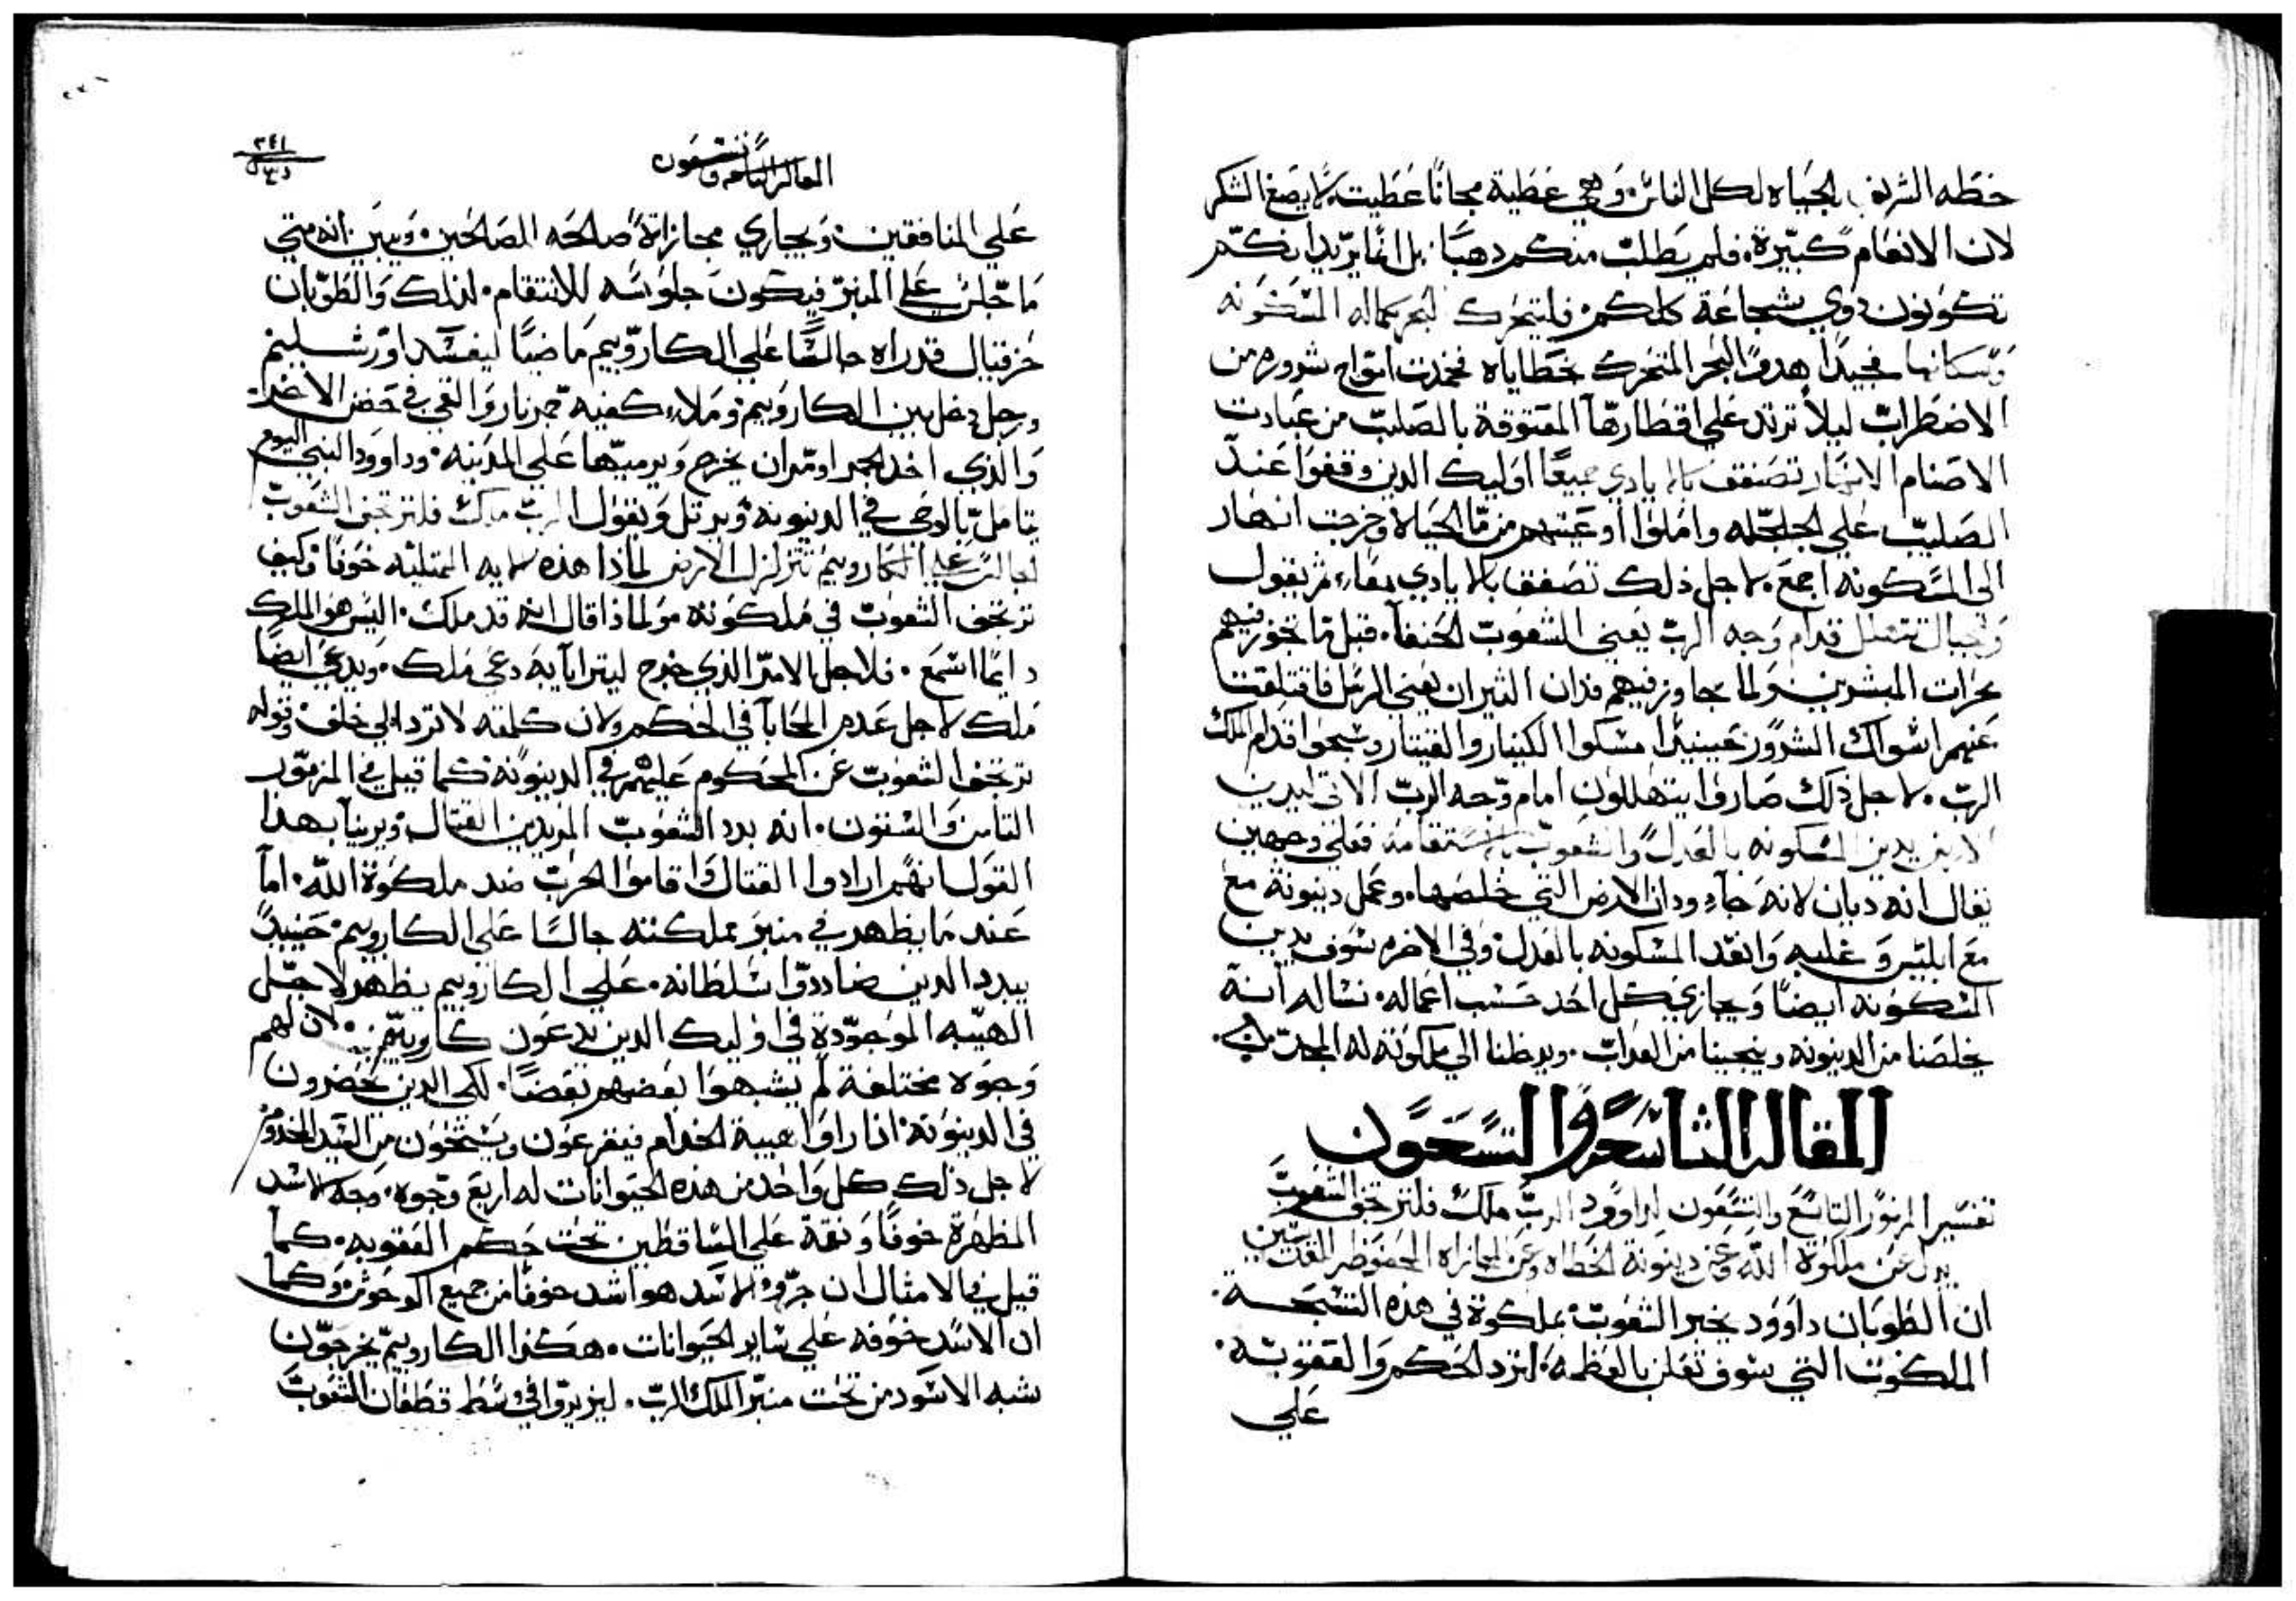 خطه الشريف الحياه لكل الناس. وهي عطية مجانًا عطيت. لا يصغ الشكر
لان الانعام كبيرة. فلم يطلب منكم دهبًا بل انما يريد انكم
تكونون دوي شجاعة كلكم. فليتحرك البحر بكماله المسكونه
وسكانها فجيدًا هدو البحر المتحرك خطاياه فخمدت امواج شروره من
الاضطراب ليلا ترتد علي اقطارها المعتوقة بالصليب من عبادت
الاصنام الانهار تصفق بالايادي جميعًا اوليك الدين وقفوا عند
الصليب علي الجلجله واملوا اوعيتهم من ما الحياة وخرجت انهار
الى المسكونه اجمع. لاجل ذلك تصفق بالايادي معاء. ثم يقول
والجبال تتهلل قدام وجه الرب يعني الشعوب الحنفا. قبل ما تجوز فيهم
بحرات المبشرين. ولما جاوز فيهم فدان التيران يعني الرسل فاقتلعت
عنهم اشواك الشرور حينيدًا مسكوا الكينار والقيتار وسبحوا قدام الملك
الرب. لاجل ذلك صاروا يتهللون امام وجه الرب الاتي ليدين
الارض يدين المسكونه بالعدل والشعوب بالاستقامة فعلي وجهين
يقال انه ديان لانه جاء ودان الارض التي خلصها. وعمل دينونة مع
مع ابليس وغلبه وانقد المسكونه بالعدل. وفي الاخره سوف يدين
المسكونه ايضًا ويجازي كل احد حسب اعماله. نساله انه
يخلصنا من الدينونه وينجينا من العداب. ويدخلنا الي ملكوته له المجد امين.
المقاله التاسعه والتسعون
تفسير المزمور التاسع والتسعون لداوود الرب ملك فلترتجف الشعوب
يدل عن ملكوة الله وعن دينونة الخطاه وعن المجازاه المحفوظه للقديسين
ان الطوبان داوود يخبر الشعوب بملكوة في هذه التسبحة.
الملكوت التي سوف تعلن بالعظمه. لترد الحكم والعقوبه.
علي
المقاله التاسعه والتسعون
٣٤١
علي المنافقين. ويجاري مجازاة صالحه الصالحين. ويبين انه متي
ما جلس علي المنبر فيكون جلوسه للانتقام. لذلك والطوبان
حزقيال قد راه جالسًا علي الكاروبيم ماضيًا ليفسد اورشليم
ورجل دخل بين الكاروبيم وملاء كفيه جمر نار والقي في حضن الاخر.
والذي اخد الجمر اومر ان يخرج ويرميها علي المدينه. وداوود النبي اليوم
يتامل بالوحي في الدينونه ويرتل ويقول الرب ملك فلترتجف الشعوب
الجالس علي الكاروبيم تتزلزل الارض لماذا هذه الايه الممتليه خوفًا وكيف
ترتجف الشعوب في ملكوته ولماذا قال انه قد ملك. اليس هو الملك
دايمًا اسمع. فلاجل الامر الذي خرج ليترايا به دعي ملك. ويدعي ايضًا
ملك لاجل عدم المحابا في الحكم ولان كلمته لا ترد الي خلف وقوله
ترتجف الشعوب عن المحكوم عليهم في الدينونة كما قيل في المزمور
التامن والستون. انه بدد الشعوب المريدين القتال. ويرينا بهدا
القول انهم ارادوا القتال واقاموا الحرب ضد ملكوة الله. اما
عند ما يظهر في منبر مملكته جالسًا علي الكاروبيم. حينيدً
يبدد الدين ضاددوا سلطانه. علي الكاروبيم يظهر لاجل
الهيبه الموجودة في اوليك الدين يدعون كاروبيم. لان لهم
وجوه مختلفة لم يشبهوا بعضهم بعضًا. لكي الدين يحضرون
في الدينونة. اذا راوا هيبة الخدام فيفزعون ويستحون من السيد المخدوم
لاجل ذلك كل واحد من هذه الحيوانات له اربع وجوه. وجه الاسد
المظهرة خوفًا ونقمة علي الساقطين تحت حكم العقوبه. كما
قيل في الامثال ان جرو الاسد هو اشد خوفًا من جميع الوحوش. وكما
ان الاسد خوفه علي ساير الحيوانات. هكذا الكاروبيم يخرجون
بشبه الاسود من تحت منبر الملك الرب. ليزيروا في وسط قطعان الشعوب